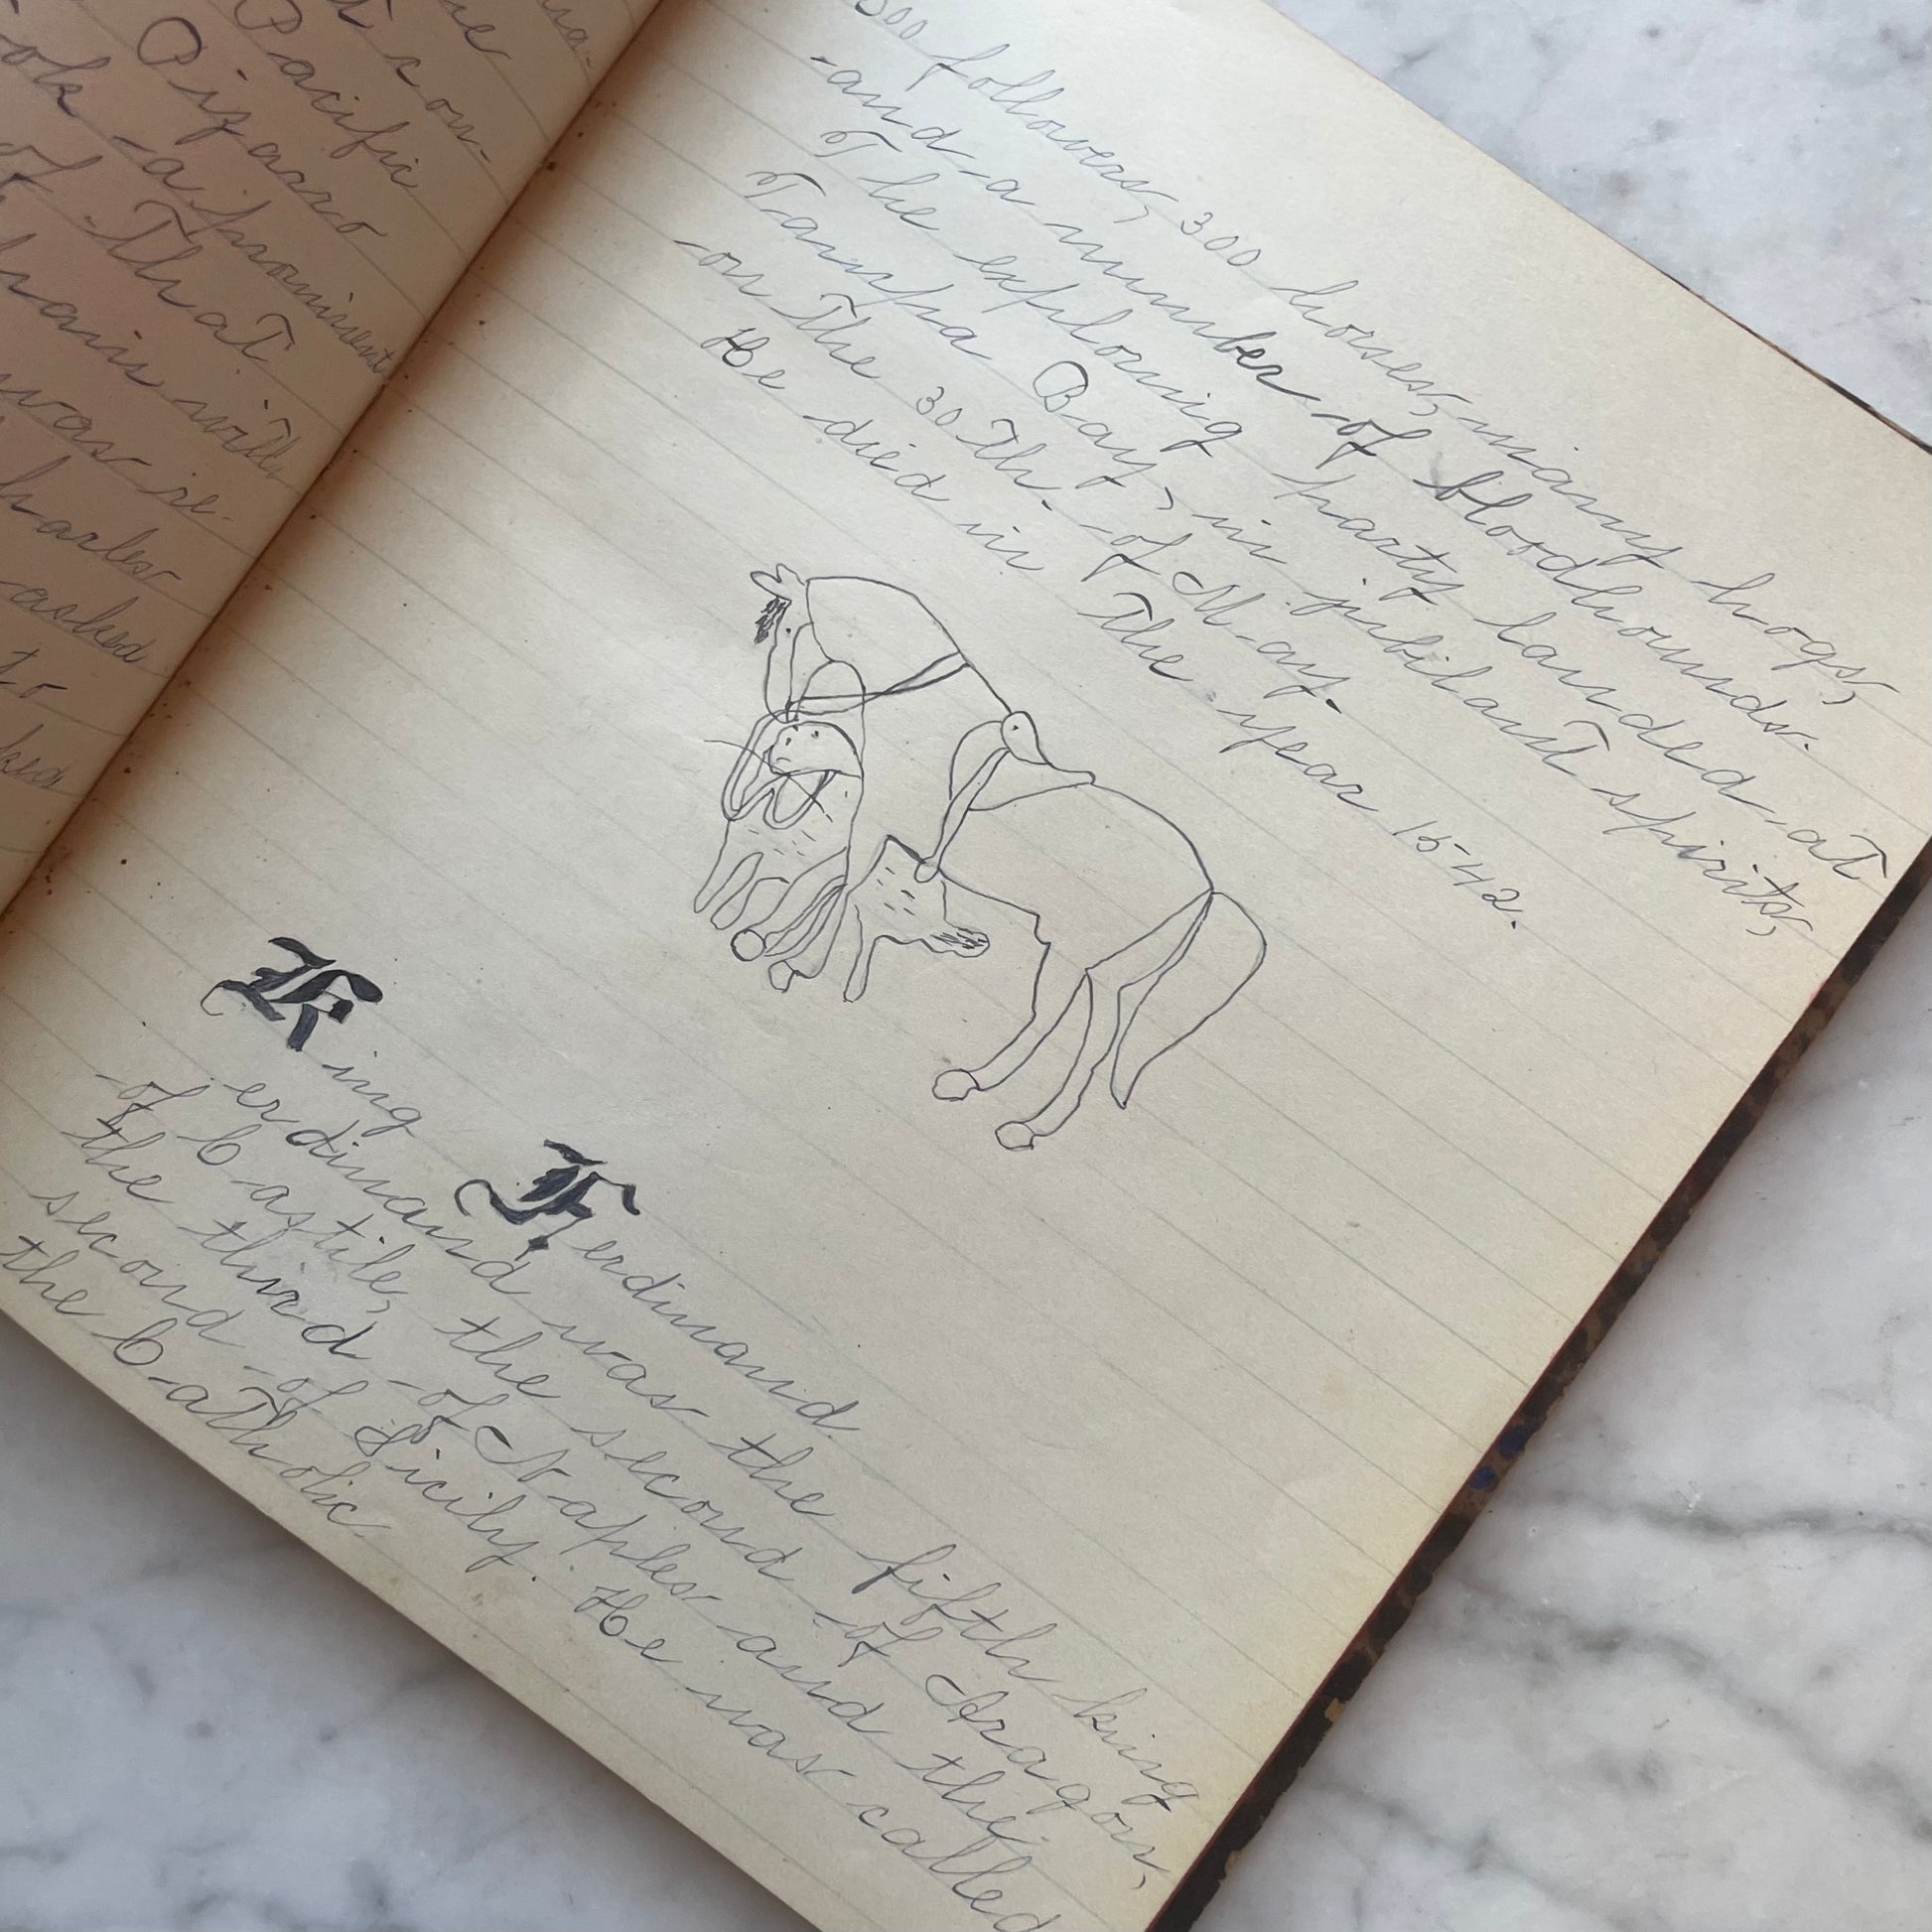 he
Pacific
Pizarro
ook a prominent
of That
with
was re-
harles
asked
to
500 followers, 300 horses, many hogs,
and a number of bloodhounds.
The exploring party landed at
Tampa Bay, in jubilant spirits,
on the 30th. of May.
He died in the year 1542.
King Ferdinand
erdinand was the fifth king
of Castile, the second of Aragon,
the third of Naples and the
second of Sicily. He was called
the Catholic